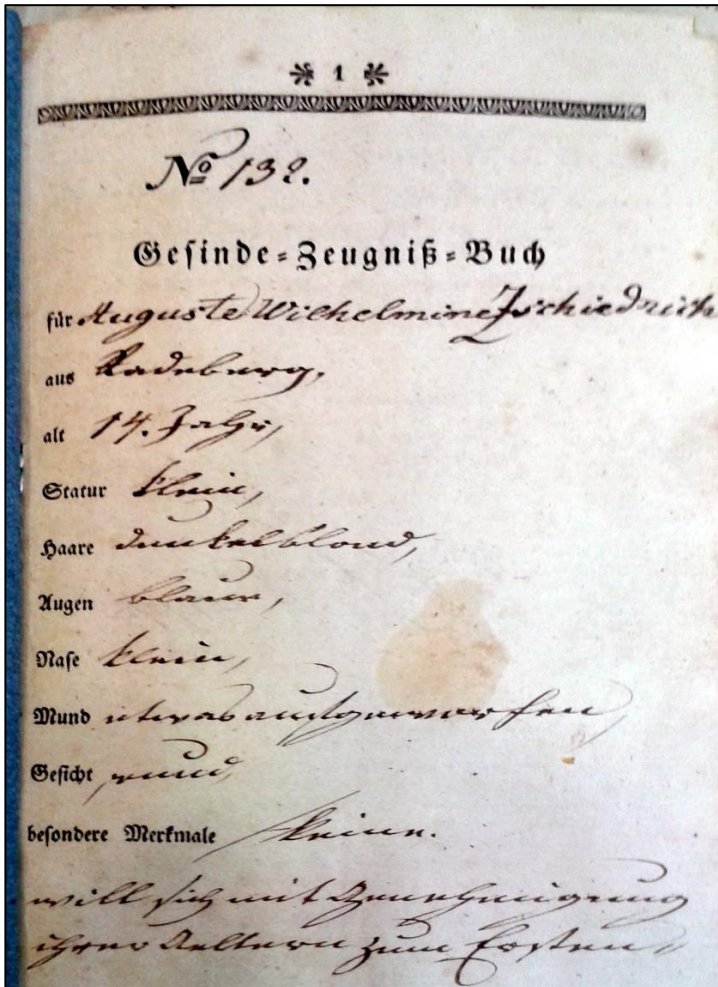 1
No 132.
Gesinde-Zeugniß-Buch
für Auguste Wilhelmine Zschiedrich
aus Radeberg,
alt 14. Jahr,
Statur klein,
Haare dunkelblond,
Augen blau,
Nase klein,
Mund etwas aufgeworfen,
Gesicht rund,
besondere Merkmale keine.
will sich mit Genehmigung
ihrer Aeltern zum Ersten